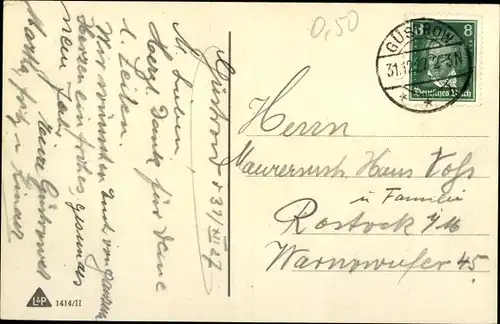 0,50
GÜSTROW
31.12.27. 2-3N
8
Deutsches Reich
Güstrow d 31/XII 27
M. Lieben,
Herzl. Dank für deine
l. Zeilen.
Wir wünschen Euch von ganzem
Herzen ein frohes, gesundes
neues Jahr
Deine Güstrower
Martha, Fritz u.
Herrn
Maurermstr. Hans Voss
u Familie
Rostock i/M
Warnowufer 45
L&P
1414/II